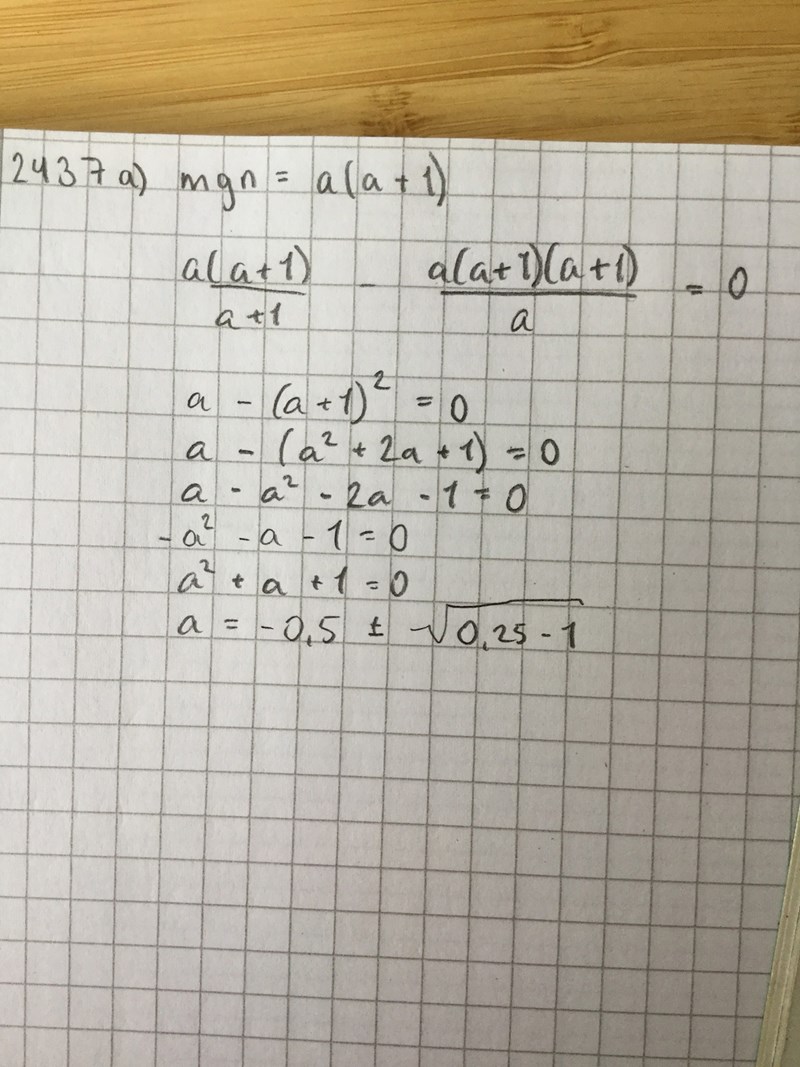 2437 a) mgn = a(a+1)
a(a+1)/a+1 - a(a+1)(a+1)/a = 0
a - (a+1)² = 0
a - (a² + 2a + 1) = 0
a - a² - 2a - 1 = 0
-a² - a - 1 = 0
a² + a + 1 = 0
a = -0,5 ± √0,25 - 1